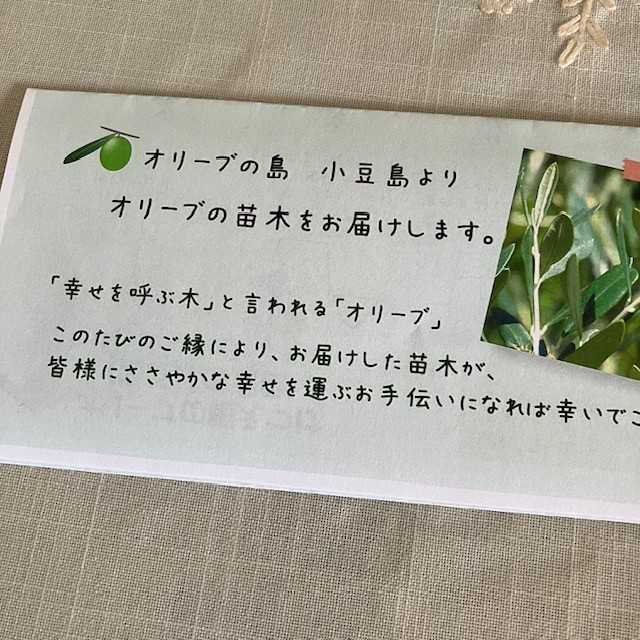 オリーブの島　小豆島より
オリーブの苗木をお届けします。
「幸せを呼ぶ木」と言われる「オリーブ」
このたびのご縁により、お届けした苗木が、
皆様にささやかな幸せを運ぶお手伝いになれば幸いでご